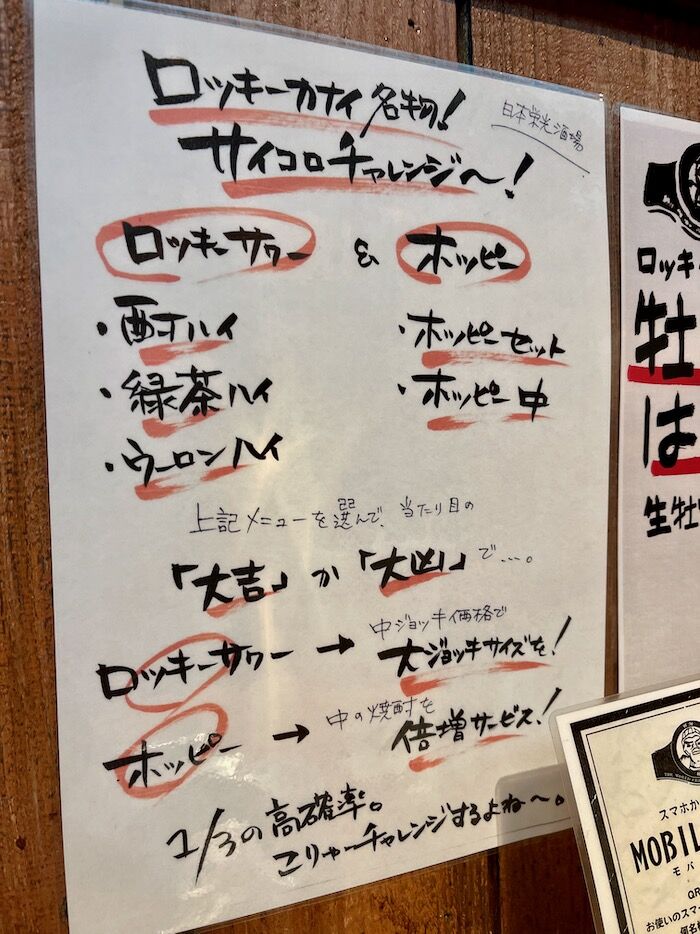 ロッキーカナイ名物!
日本栄光酒場
サイコロチャレンジ〜!
ロッキーサワー & ホッピー
・酎ハイ
・緑茶ハイ
・ウーロンハイ
・ホッピーセット
・ホッピー中
上記メニューを選んで、当たり目の
「大吉」か「大凶」で…。
ロッキーサワー → 中ジョッキ価格で
大ジョッキサイズを!
ホッピー → 中の焼酎を
倍増サービス!
1/3の高確率。
こりゃーチャレンジするよね〜。
ロッキ
牡
は
生牡
スマホか
MOBIL
モバ
QR
お使いのスマー